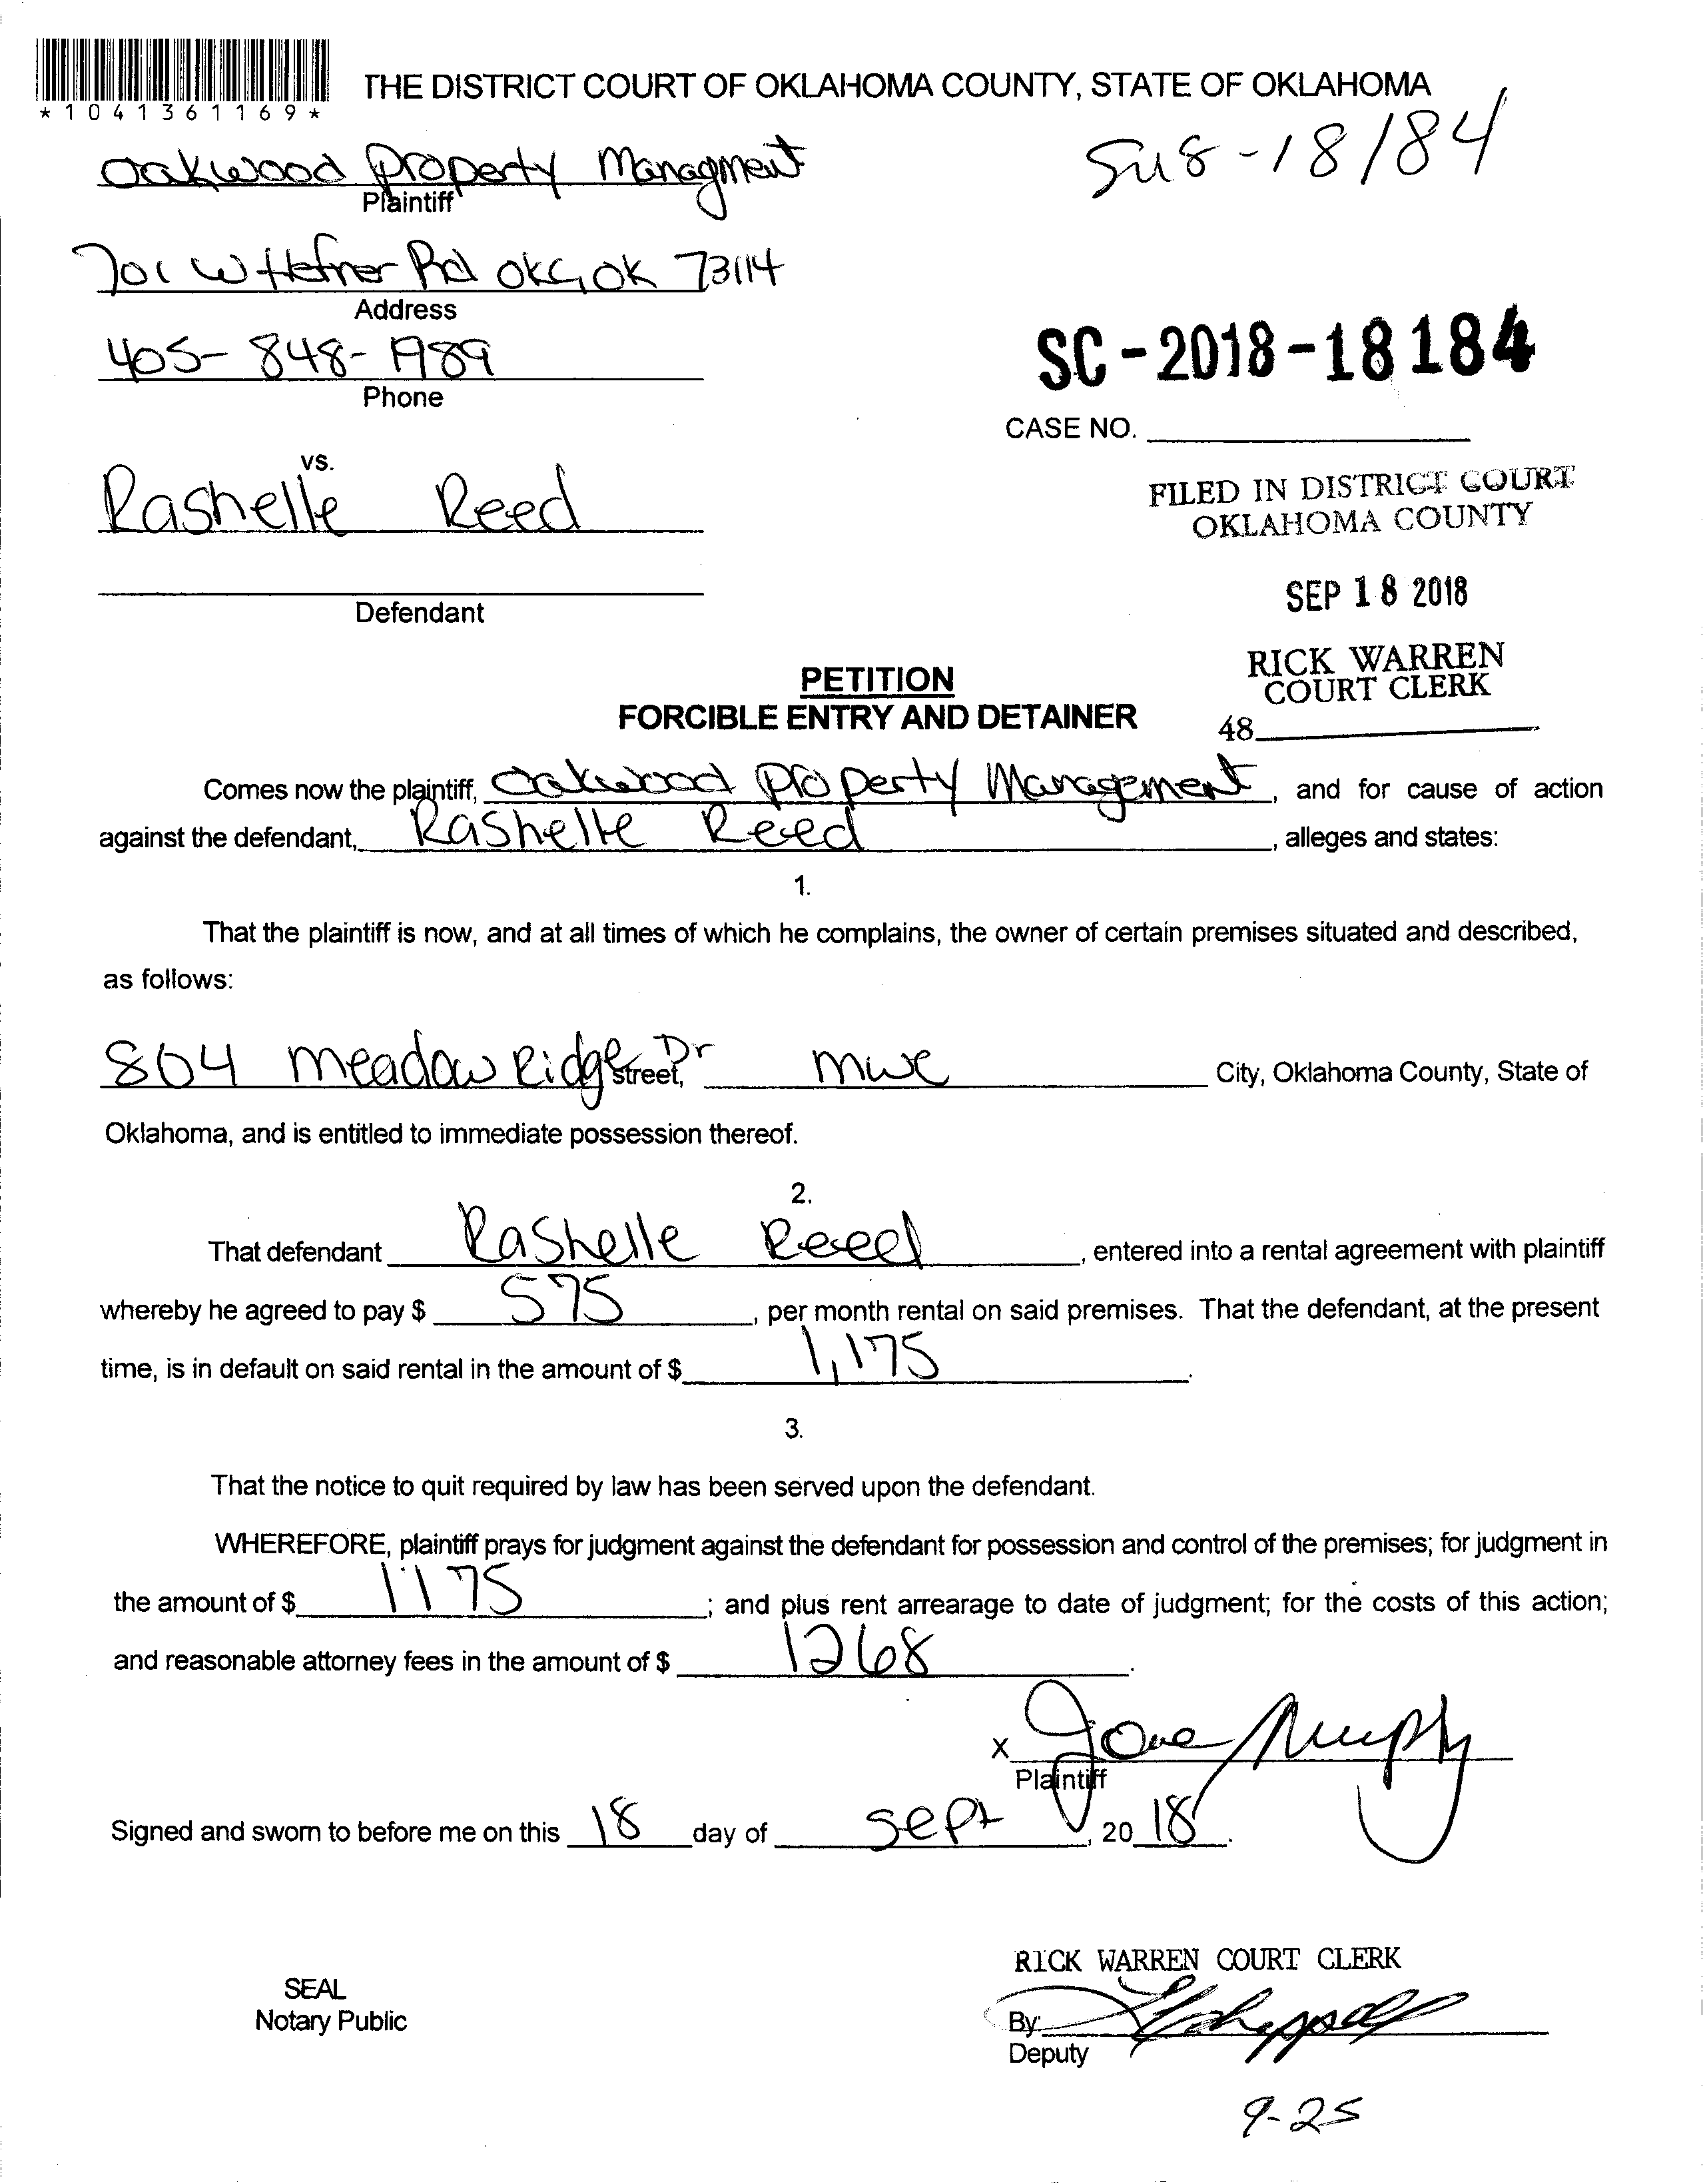 *1041361169*
THE DISTRICT COURT OF OKLAHOMA COUNTY, STATE OF OKLAHOMA
Oakwood Property Managment
Plaintiff
-18184
701 W Hefner Rd OKC, OK 73114
Address
405-848-1989
Phone
SC-2018-18184
CASE NO.
vs.
Rashelle Reed
FILED IN DISTRICT COURT
OKLAHOMA COUNTY
SEP 18 2018
Defendant
RICK WARREN
COURT CLERK
48
PETITION
FORCIBLE ENTRY AND DETAINER
Comes now the plaintiff, Oakwood Property Management, and for cause of action
against the defendant, Rashelle Reed, alleges and states:
1.
That the plaintiff is now, and at all times of which he complains, the owner of certain premises situated and described,
as follows:
804 Meadow Ridge Dr Street, MWC City, Oklahoma County, State of
Oklahoma, and is entitled to immediate possession thereof.
2.
That defendant Rashelle Reed, entered into a rental agreement with plaintiff
whereby he agreed to pay $ 575, per month rental on said premises. That the defendant, at the present
time, is in default on said rental in the amount of $ 1,175.
3.
That the notice to quit required by law has been served upon the defendant.
WHEREFORE, plaintiff prays for judgment against the defendant for possession and control of the premises; for judgment in
the amount of $ 1175; and plus rent arrearage to date of judgment; for the costs of this action;
and reasonable attorney fees in the amount of $ 1268.
x Jone Murphy
Plaintiff
Signed and sworn to before me on this 18 day of Sept, 2018.
RICK WARREN COURT CLERK
SEAL
Notary Public
By:
Deputy
9-25